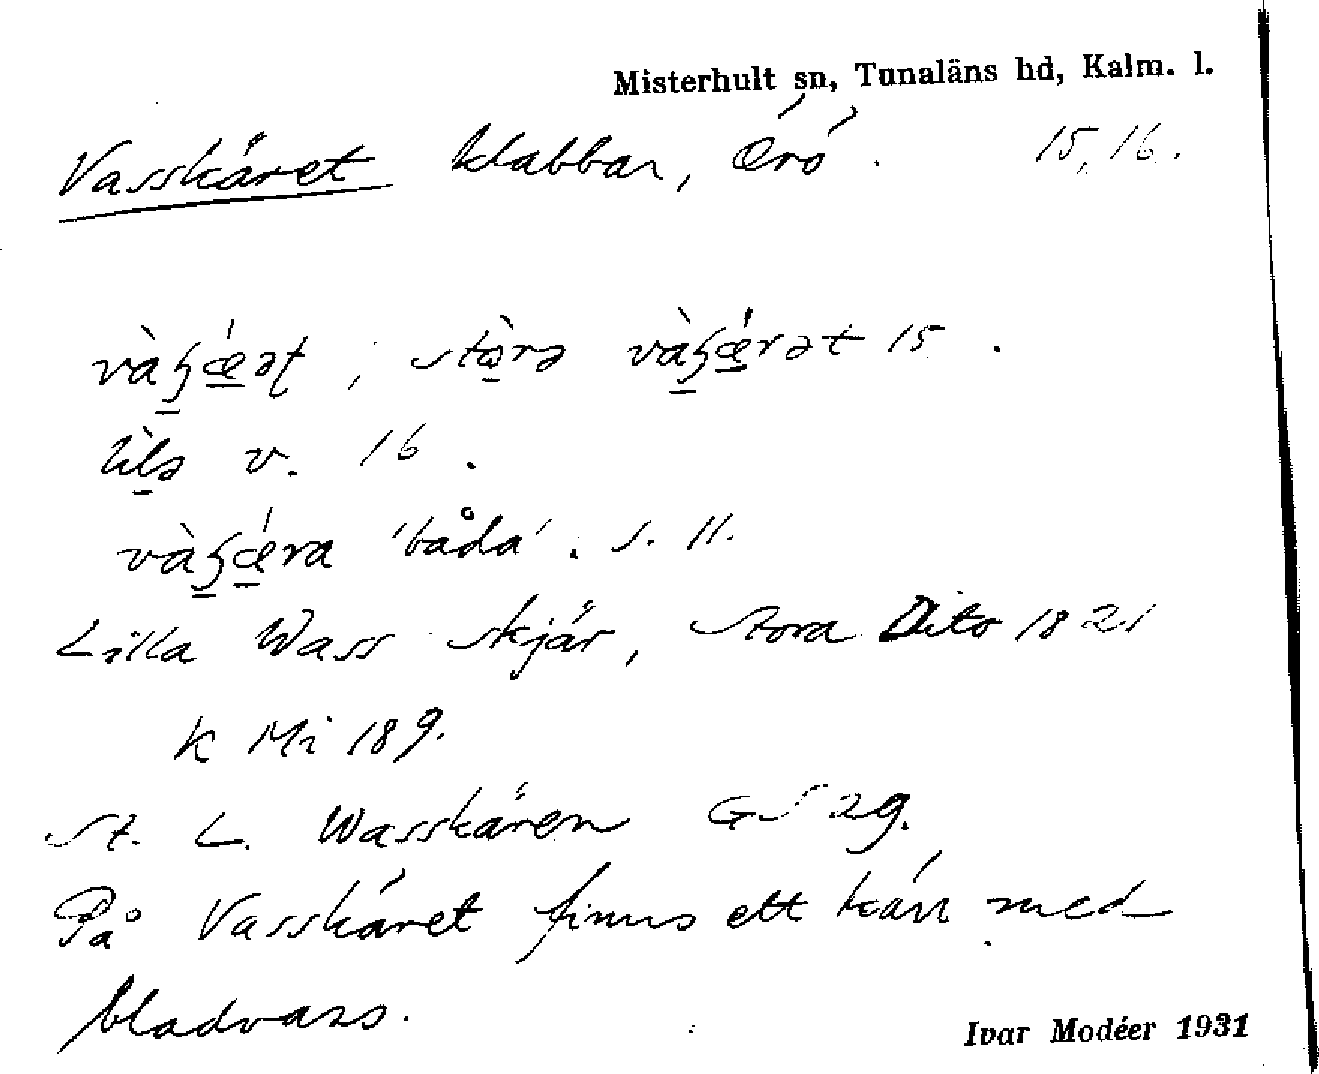 Misterhult sn, Tunaläns hd, Kalm. l.
Vasskäret klabbar, Örö. 15, 16.
stòrə 15.
lìlə v. 16.
'båda'. s. 11.
Lilla Wass skjär, Stora Dito 1821
k Mi 189.
St. L. Wasskären GS 29.
På Vasskäret finns ett kärr med
bladvass.
Ivar Modéer 1931